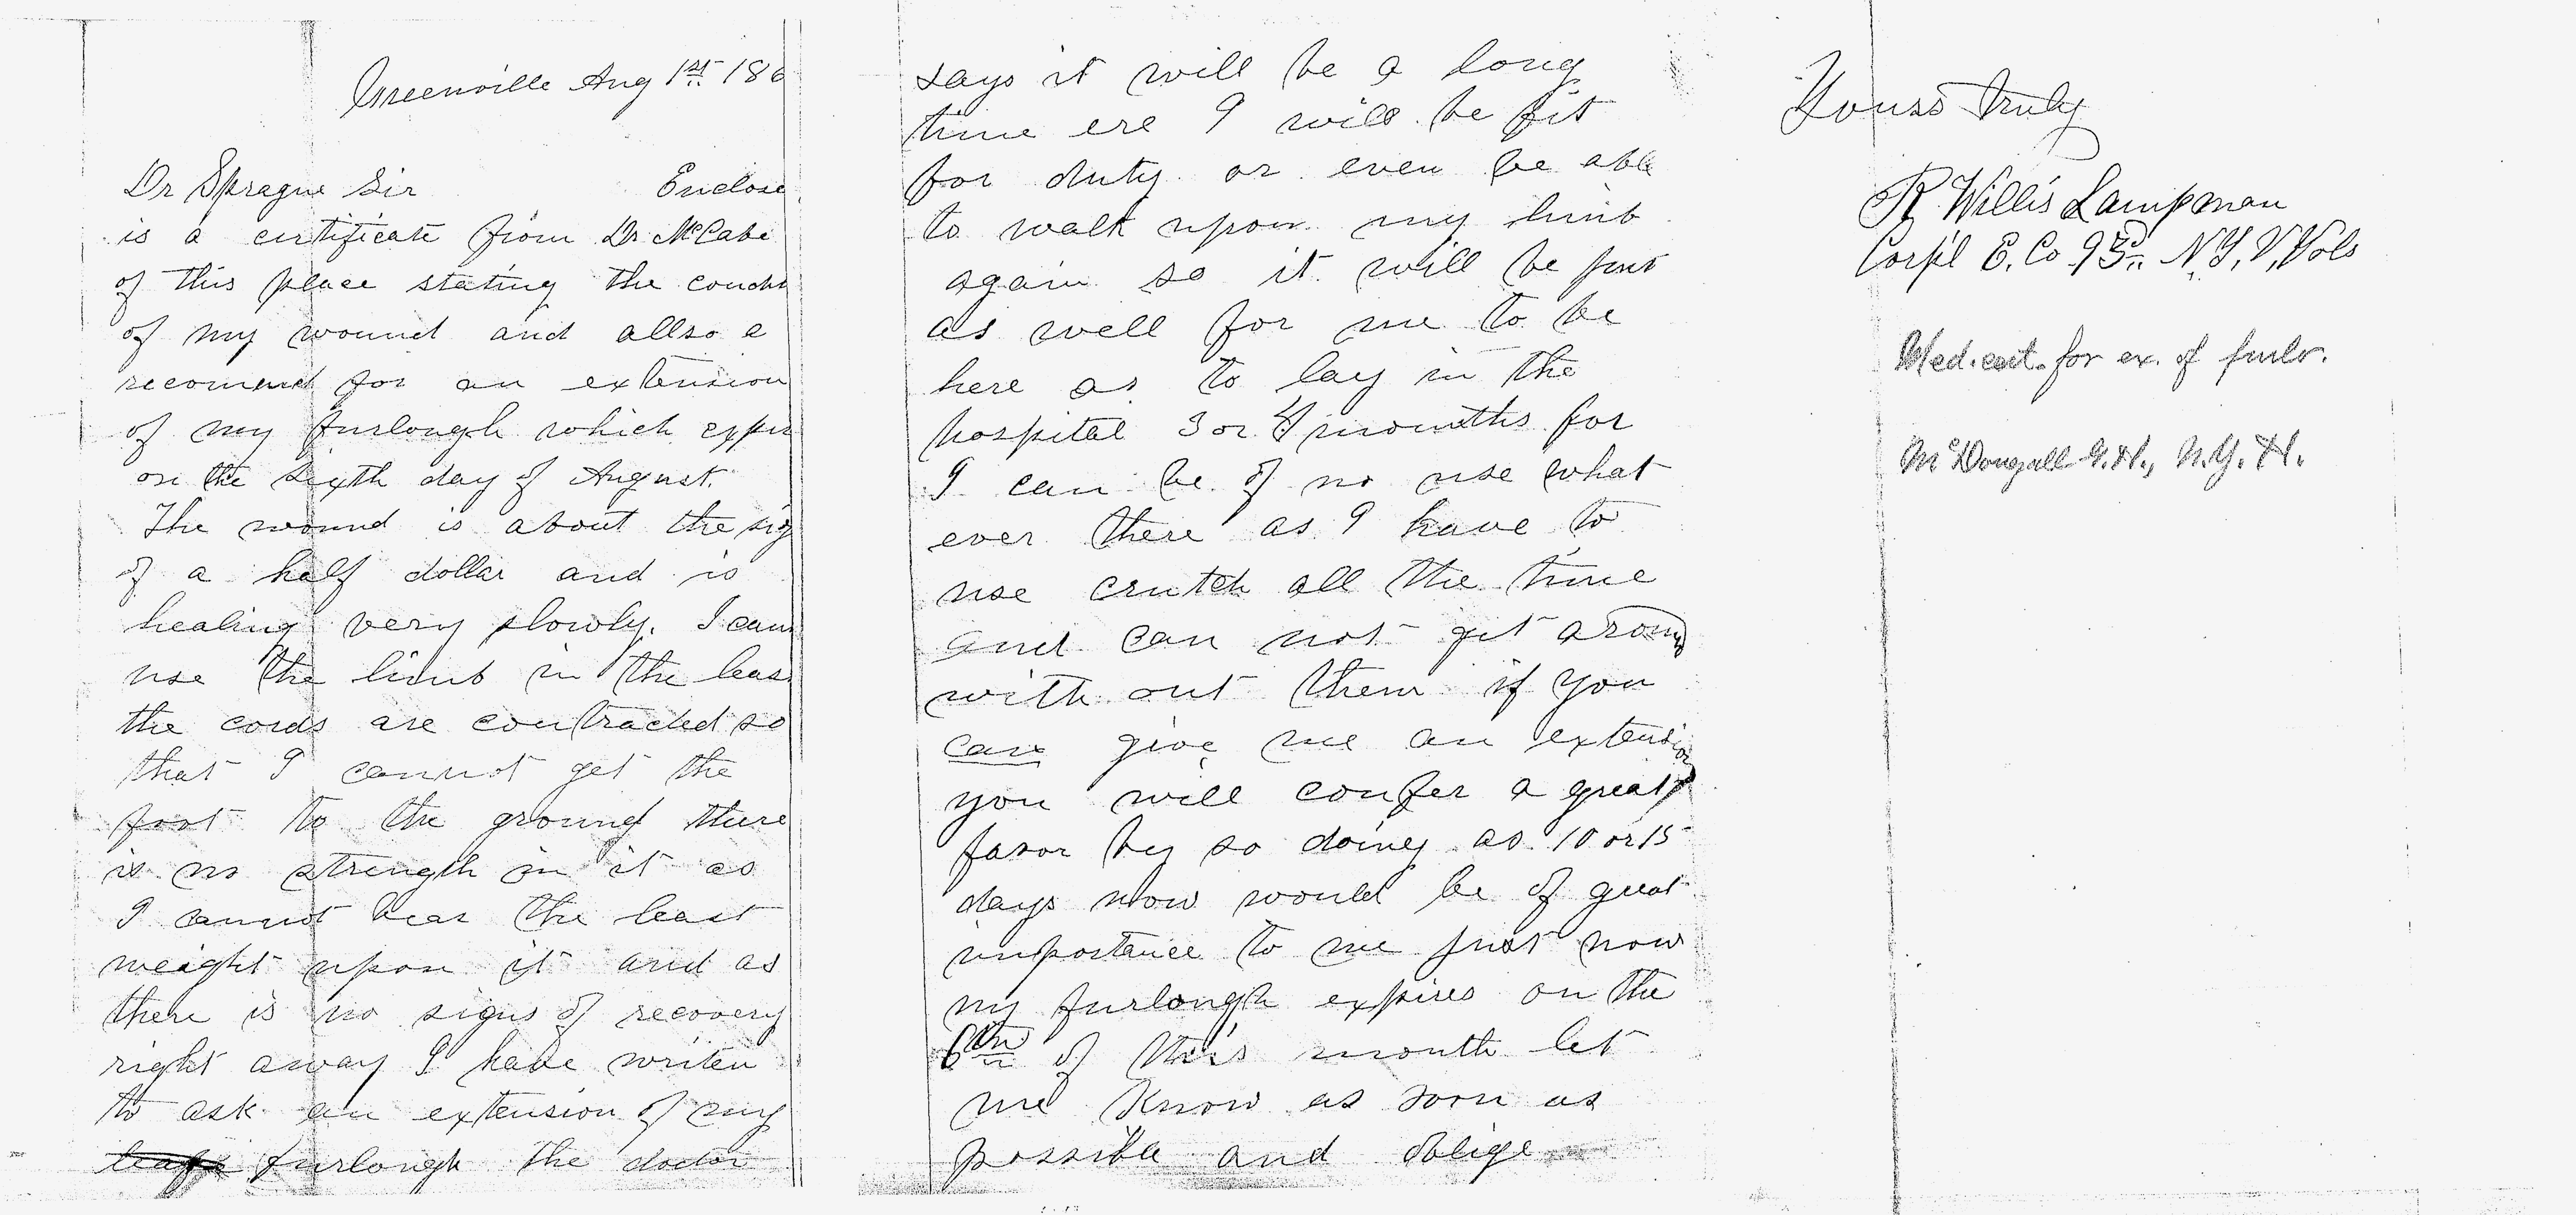 Greenville Aug 1st 186
Dr Sprague Sir Enclose
is a certificate from Dr McCabe
of this place stating the condit
of my wound and allso a
recomend for an extension
of my furlough which expir
on the sixth day of August.
The wound is about the siz
of a half dollar and is
healing very slowly. I cann
use the limb in the leas
the cords are contracted so
that I cannot get the
foot to the ground there
is no strength in it as
I cannot bear the least
weight upon it and as
there is no signs of recovery
right away I have writen
to ask an extension of my
furlough the doctor
says it will be a long
time ere I will be fit
for duty or even be able
to walk upon my limb
again so it will be just
as well for me to be
here as to lay in the
hospital 3 or 4 months for
I can be of no use what
ever there as I have to
use crutch all the time
and can not get around
with out them if you
can give me an extension
you will confer a great
favor by so doing as 10 or 15
days now would be of great
importance to me just now
my furlough expires on the
6th of this month let
me know as soon as
possible and oblige
Yours Truly
R Willis Lampman
Corp'l E. Co 93d N.Y.V. Vols
Med. cert. for ex. of furlo.
McDougall G.H., N.Y.H.